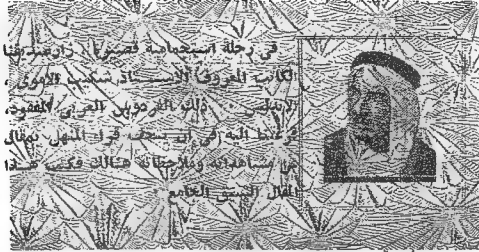 في رحلة استجمامية قصيرة زار صديقنا
الكاتب المعروف الأستاذ شكيب الأموي ،
الأندلس ، ذلك الفردوس العربي المفقود،
فرغبنا اليه في أن يتحف قراء المنهل بمقال
عن مشاهداته وملاحظاته هنالك فكتب هذا
المقال الشيق الجامع